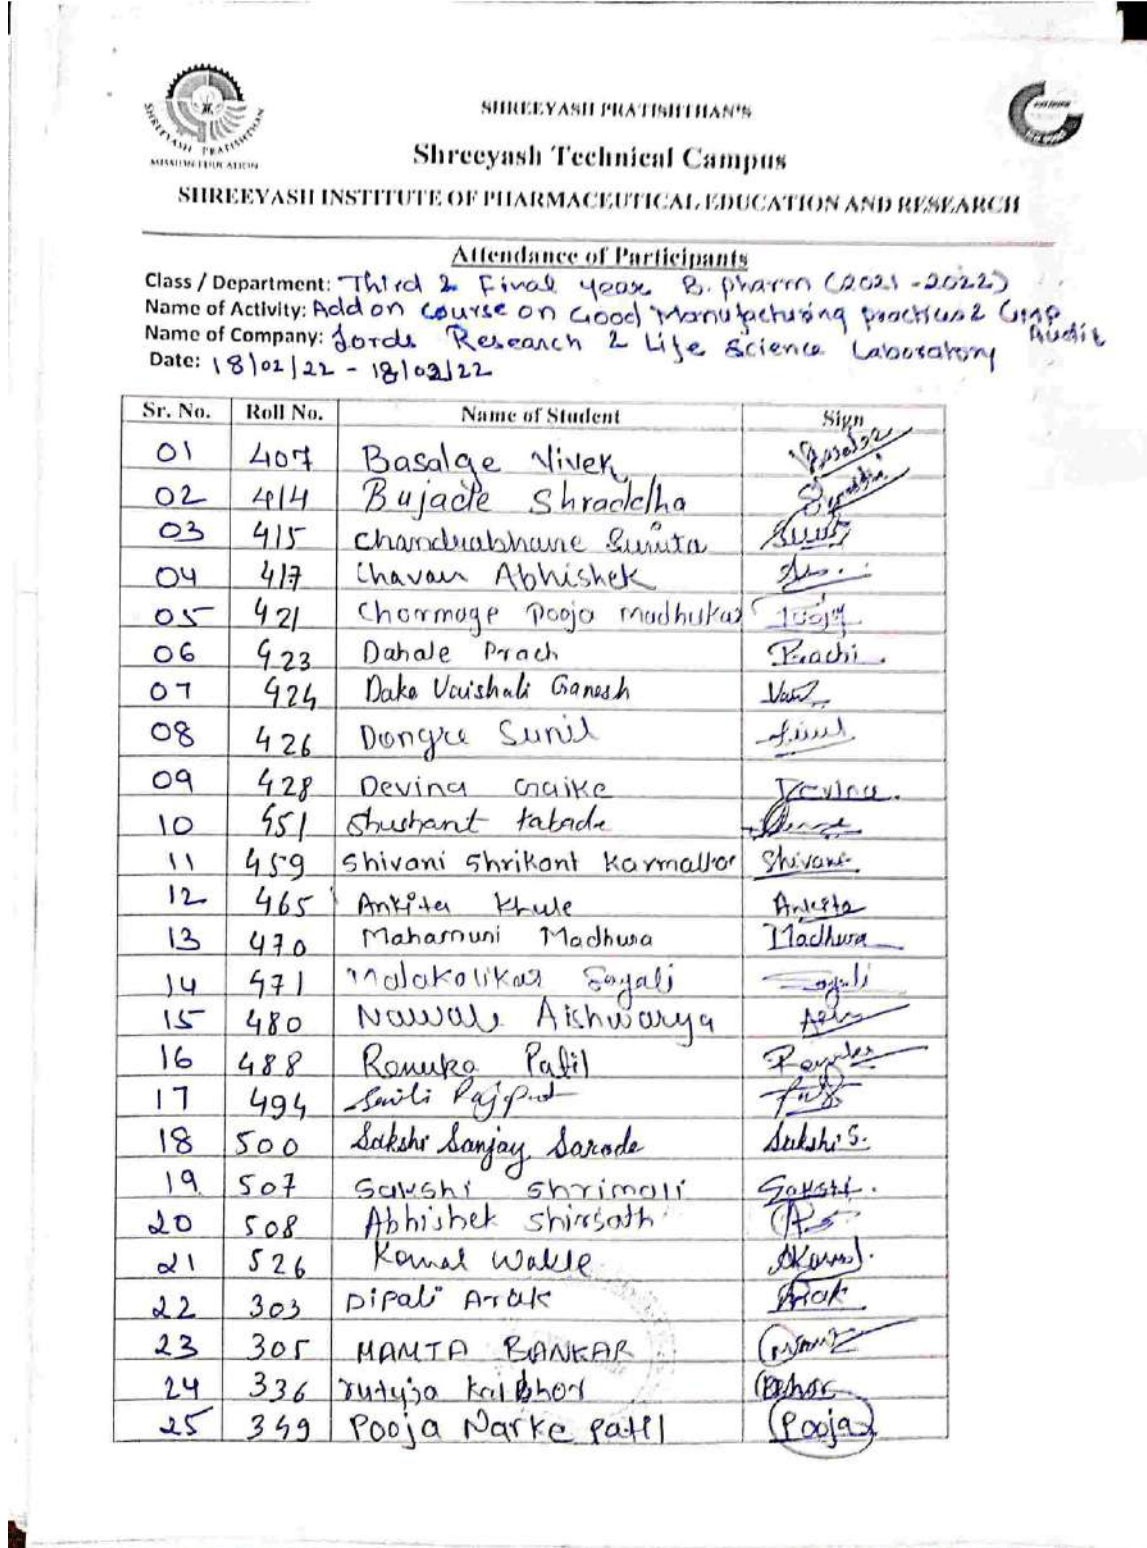 SHREEYASH PRATISHTHAN
MISSION EDUCATION
SHREEYASH PRATISHTHAN'S
Shreeyash Technical Campus
SHREEYASH INSTITUTE OF PHARMACEUTICAL EDUCATION AND RESEARCH
Attendance of Participants
Class / Department: Third & Final year B. pharm (2021-2022)
Name of Activity: Add on course on Good Manufacturing practices & Gmp Audit
Name of Company: Jords Research & Life Science Laboratory
Date: 18/02/22 - 18/03/22
Sr. No. Roll No. Name of Student Sign
01 407 Basalge Vivek
02 414 Bujade Shraddha
03 415 Chandrabhane Sunita
04 417 Chavan Abhishek
05 421 Chormage Pooja Madhukar Pooja
06 423 Dahale Prach Prachi.
07 424 Dake Vaishali Ganesh
08 426 Dongre Sunil
09 428 Devina Gaike Devina.
10 451 Shushant kabade
11 459 Shivani Shrikant Karmalkar Shivani
12 465 Ankita Khule Ankita
13 470 Mahamuni Madhura Madhura
14 471 Malakolikar Sayali Sayali
15 480 Nawale Aishwarya
16 488 Renuka Patil Renuka
17 494 Saili Rajput
18 500 Sakshi Sanjay Sarode Sakshi S.
19 507 Sakshi Shrimali Sakshi.
20 508 Abhishek Shirsath
21 526 Komal Wakle Komal.
22 303 Dipali Arak Arak
23 305 MAMTA BANKAR
24 336 rutuja Kalbhor
25 349 Pooja Narke patil Pooja